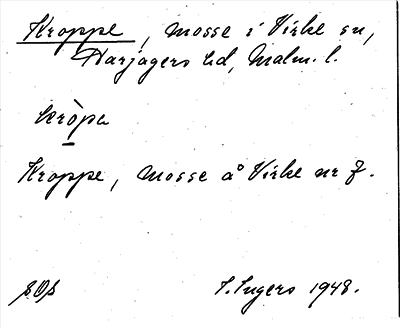 Kroppe, mosse i Virke sn,
Harjagers hd, Malm. l.
kròpa
Kroppe, mosse å Virke nr 7.
S. Ingers 1948.